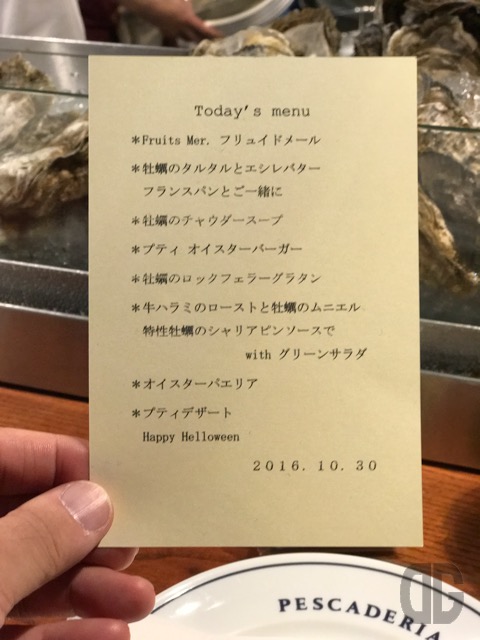 Today's menu
*Fruits Mer. フリュイドメール
*牡蠣のタルタルとエシレバター
フランスパンとご一緒に
*牡蠣のチャウダースープ
*プティ オイスターバーガー
*牡蠣のロックフェラーグラタン
*牛ハラミのローストと牡蠣のムニエル
特性牡蠣のシャリアピンソースで
with グリーンサラダ
*オイスターパエリア
*プティデザート
Happy Helloween
2016.10.30
PESCADERIA